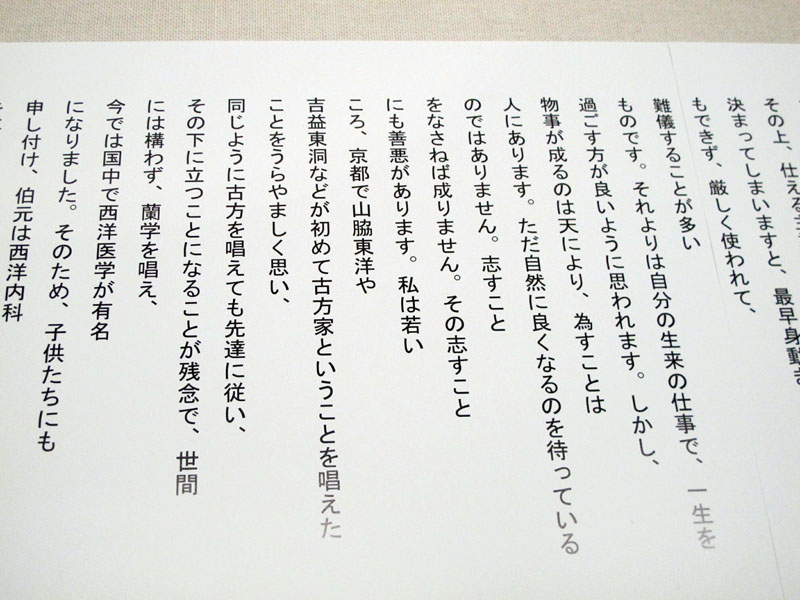 その上、仕える
決まってしまいますと、最早身動き
もできず、厳しく使われて、
難儀することが多い
ものです。それよりは自分の生来の仕事で、一生を
過ごす方が良いように思われます。しかし、
物事が成るのは天により、為すことは
人にあります。ただ自然に良くなるのを待っている
のではありません。志すこと
をなさねば成りません。その志すこと
にも善悪があります。私は若い
ころ、京都で山脇東洋や
吉益東洞などが初めて古方家ということを唱えた
ことをうらやましく思い、
同じように古方を唱えても先達に従い、
その下に立つことになることが残念で、世間
には構わず、蘭学を唱え、
今では国中で西洋医学が有名
になりました。そのため、子供たちにも
申し付け、伯元は西洋内科